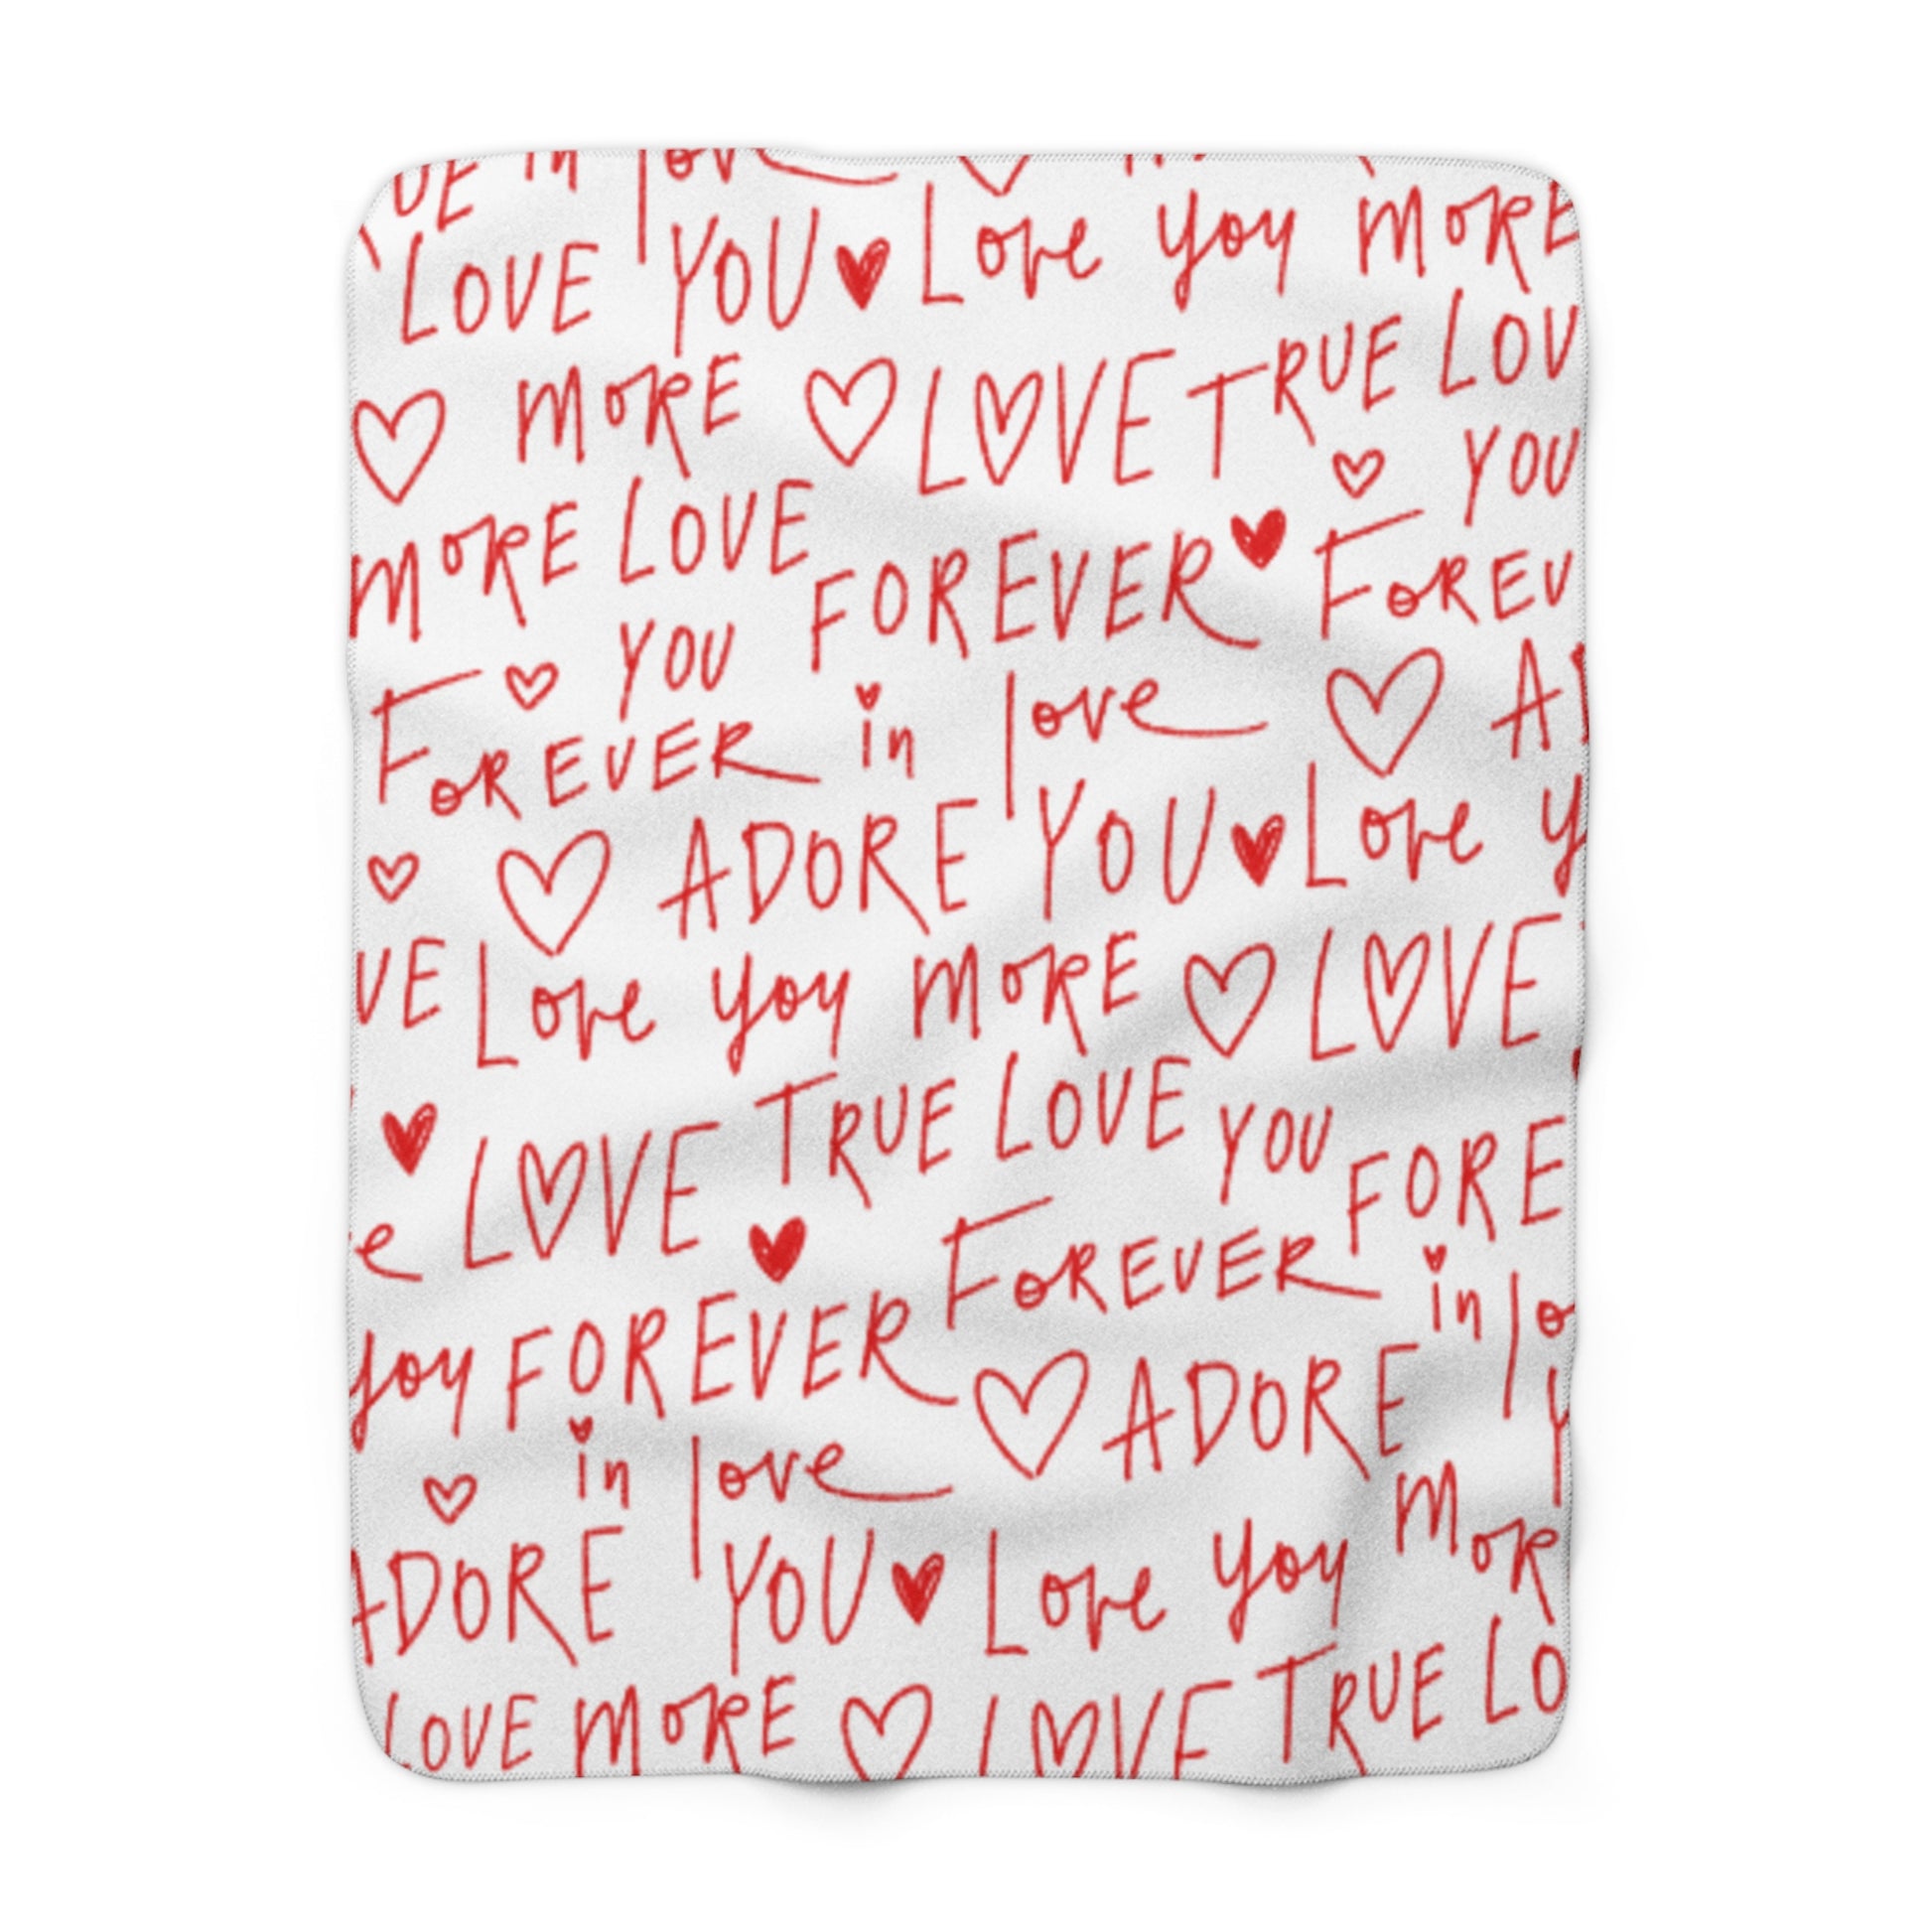 UE in love
LOVE YOU Love you MORE
MORE LOVE TRUE LOV
YOU
MORE LOVE FOREVER FOREV
YOU
FOREVER in love A
ADORE YOU Love y
VE Love you MORE LOVE
LOVE TRUE LOVE YOU FORE
e FOREVER in lo
you FOREVER ADORE Y
in love MOR
ADORE YOU Love you
LOVE MORE LOVE TRUE LO